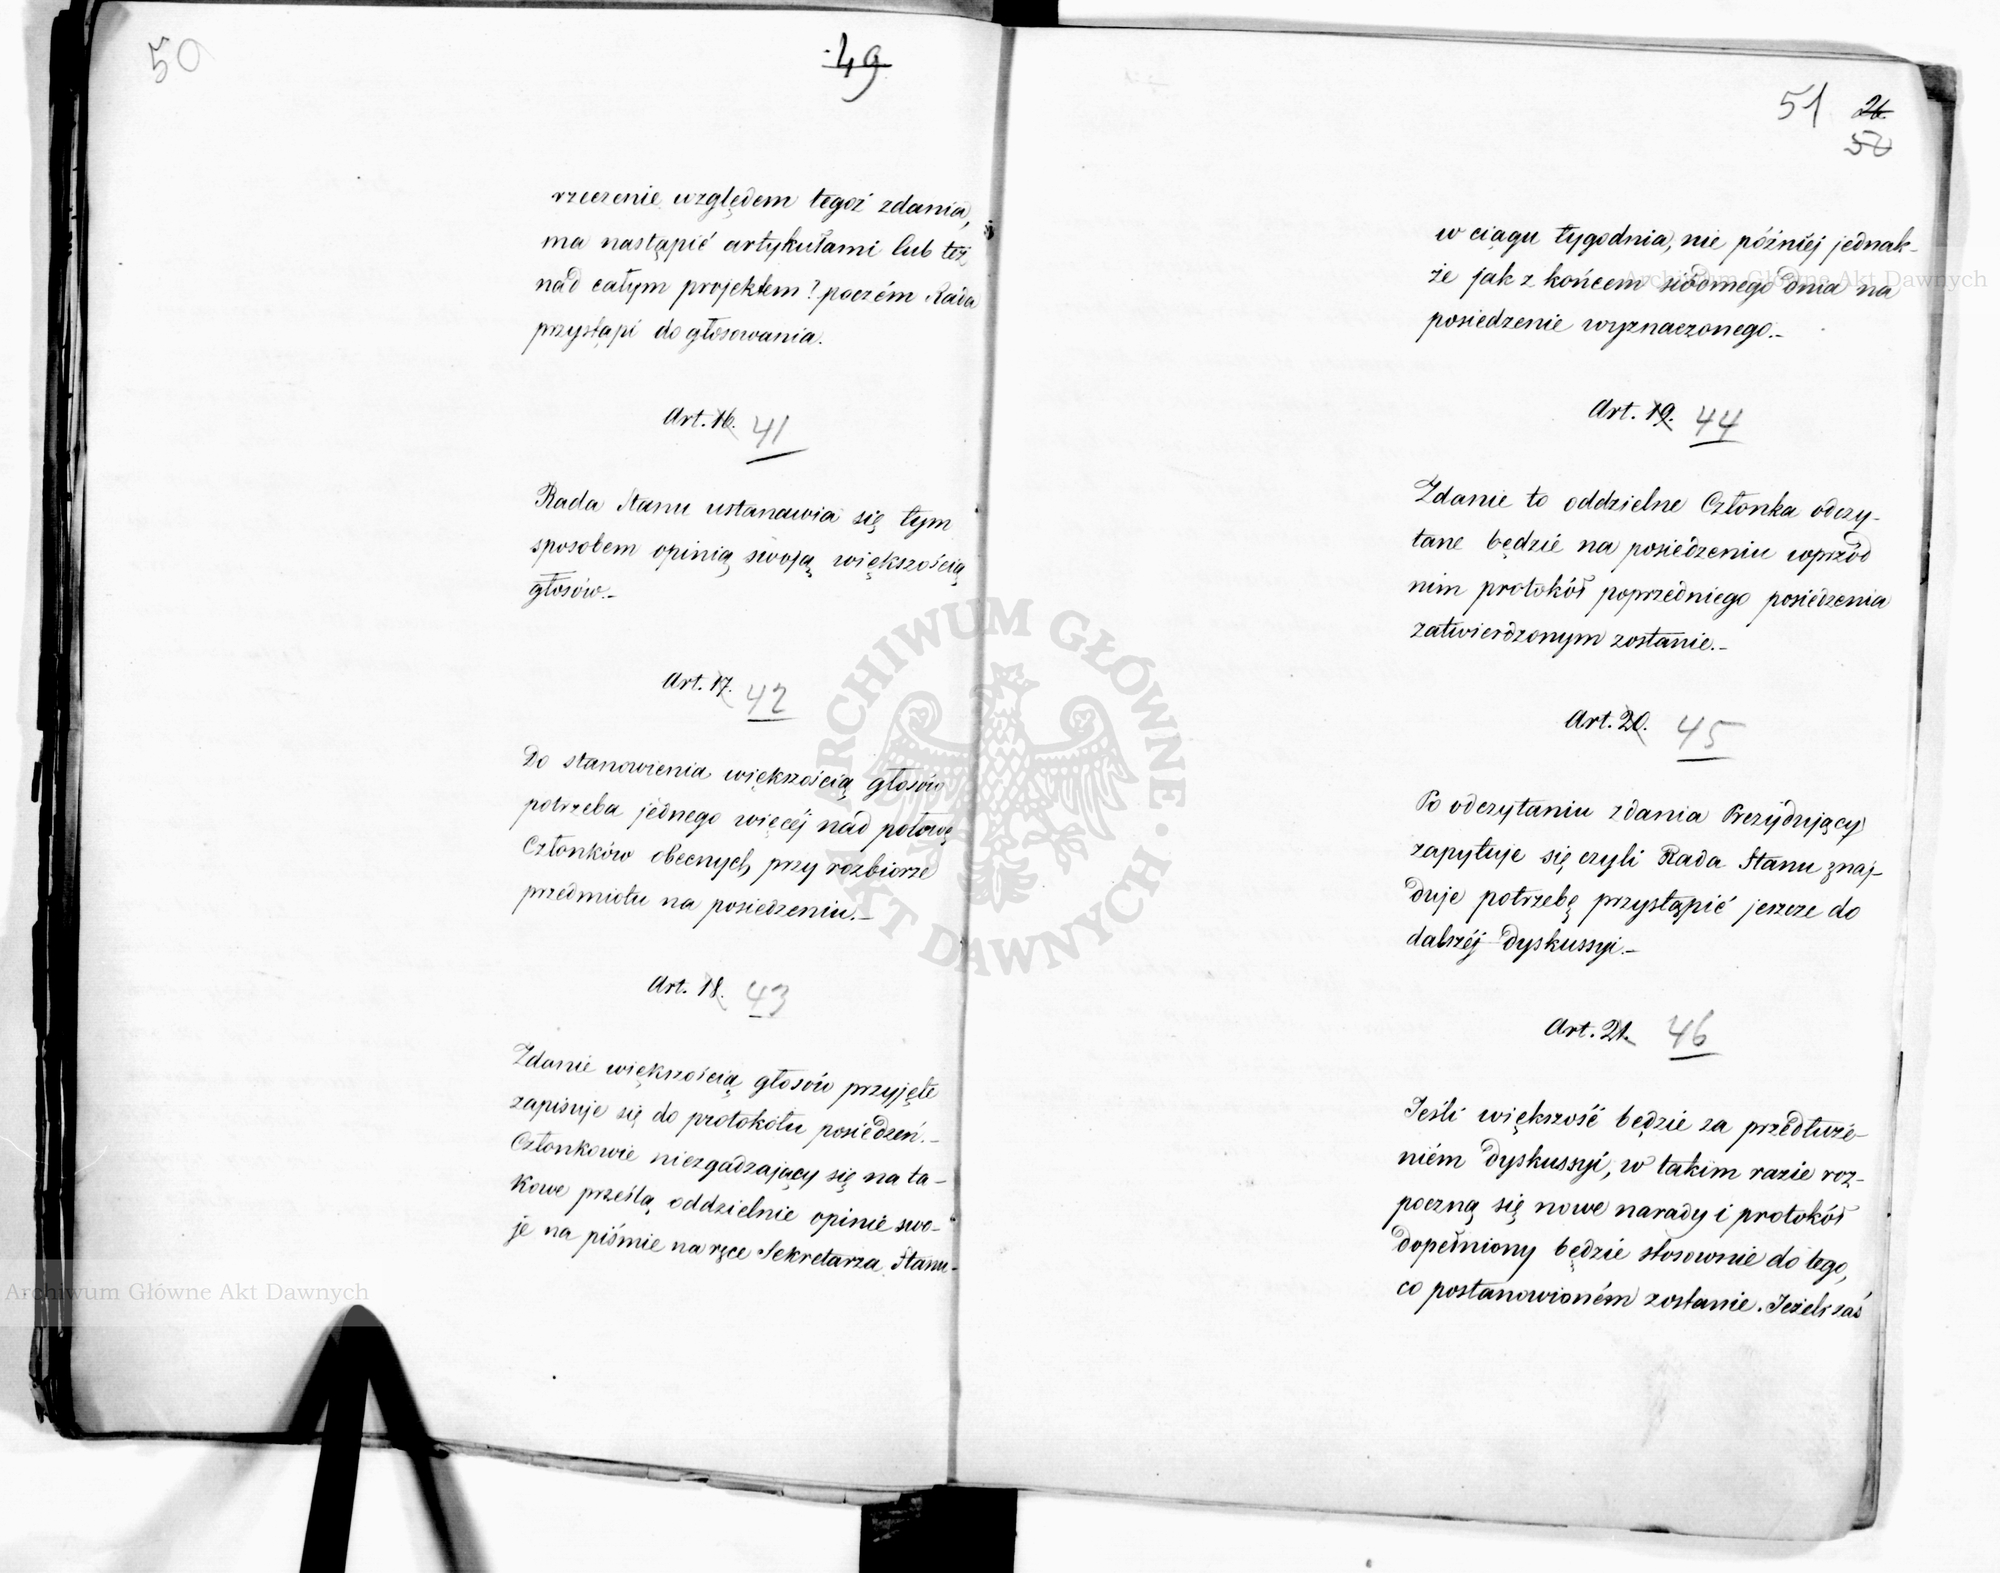 50
49
rzeczenie względem tegoż zdania,
ma nastąpić artykułami lub też
nad całym projektem? poczém Rada
przystąpi do głosowania.
Art. 16. 41
Rada Stanu ustanawia się tym
sposobem opinią swoją większością
głosów.–
Art. 17. 42
Do stanowienia większością głosów
potrzeba jednego więcéj nad połowę
Członków obecnych przy rozbiorze
przedmiotu na posiedzeniu.–
Art. 18. 43
Zdanie większością głosów przyjęte
zapisuje się do protokółu posiedzeń.–
Członkowie niezgadzający się na ta-
kowe prześlą oddzielnie opinie swo-
je na piśmie na ręce Sekretarza Stanu
51 26.
50
w ciągu tygodnia, nie późniéj jednak-
że jak z końcem siódmego dnia na
posiedzenie wyznaczonego.–
Art. 19. 44
Zdanie to oddzielne Członka odczy-
tane będzie na posiedzeniu wprzód
nim protokół poprzedniego posiedzenia
zatwierdzonym zostanie.–
Art. 20. 45
Po odczytaniu zdania Prezydujący
zapytuje się czyli Rada Stanu znaj-
duje potrzebę przystąpić jeszcze do
dalszéj dyskussyi.–
Art. 21. 46
Jeśli większość będzie za przedłuże-
niém dyskussyi, w takim razie roz-
poczną się nowe narady i protokół
dopełniony będzie stosownie do tego,
co postanowioném zostanie. Jeżeli zaś
Archiwum Główne Akt Dawnych
ARCHIWUM GŁÓWNE AKT DAWNYCH
Archiwum Główne Akt Dawnych